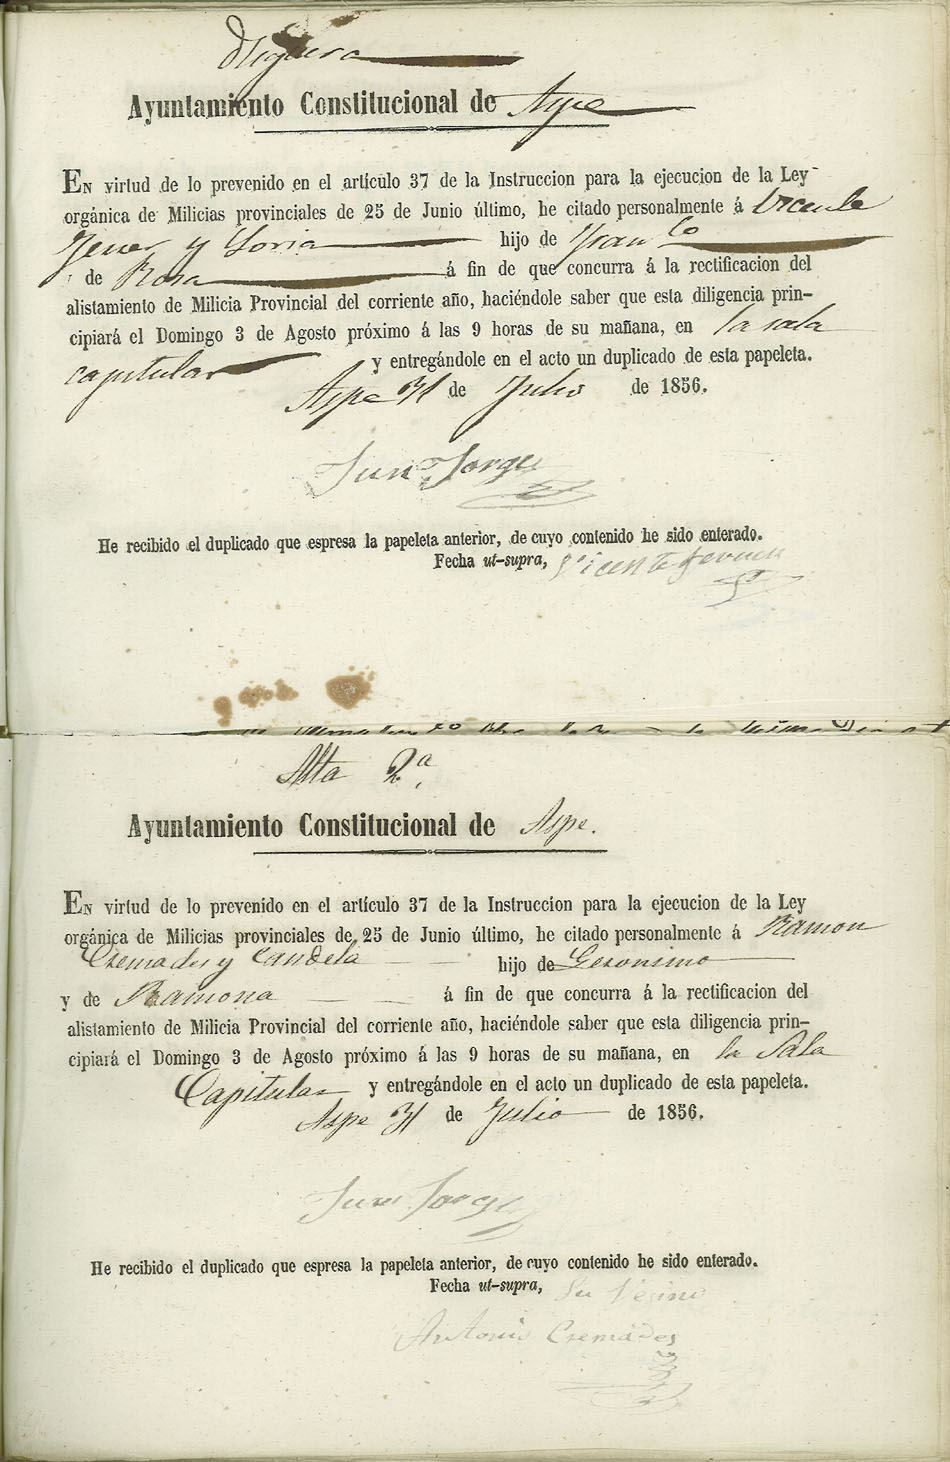 Ayuntamiento Constitucional de Aspe
EN virtud de lo prevenido en el artículo 37 de la Instruccion para la ejecucion de la Ley
orgánica de Milicias provinciales de 25 de Junio último, he citado personalmente á Vicente
y Soria hijo de Fran.co
de Rosa á fin de que concurra á la rectificacion del
alistamiento de Milicia Provincial del corriente año, haciéndole saber que esta diligencia prin-
cipiará el Domingo 3 de Agosto próximo á las 9 horas de su mañana, en la sala
capitular y entregándole en el acto un duplicado de esta papeleta.
Aspe 31 de Julio de 1856.
Jorge
He recibido el duplicado que espresa la papeleta anterior, de cuyo contenido he sido enterado.
Fecha ut-supra, Vicente
Alta 2ª.
Ayuntamiento Constitucional de Aspe.
EN virtud de lo prevenido en el artículo 37 de la Instruccion para la ejecucion de la Ley
orgánica de Milicias provinciales de 25 de Junio último, he citado personalmente á Ramon
Cremades y Candela hijo de Geronimo
y de Ramona á fin de que concurra á la rectificacion del
alistamiento de Milicia Provincial del corriente año, haciéndole saber que esta diligencia prin-
cipiará el Domingo 3 de Agosto próximo á las 9 horas de su mañana, en la Sala
Capitular y entregándole en el acto un duplicado de esta papeleta.
Aspe 31 de Julio de 1856.
Jorge
He recibido el duplicado que espresa la papeleta anterior, de cuyo contenido he sido enterado.
Fecha ut-supra, Su Vesino
Antonio Cremades